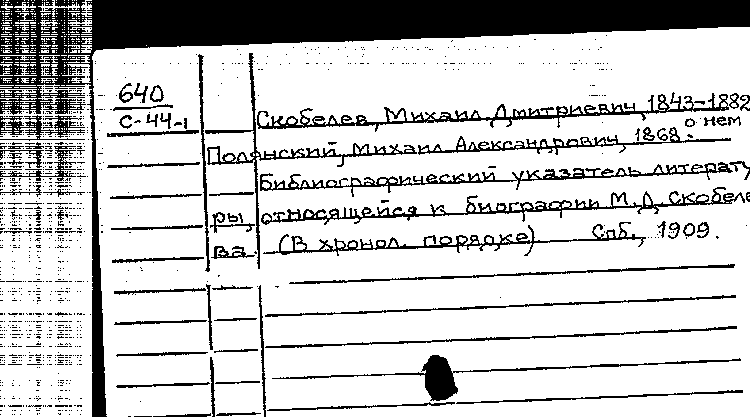 640
С-44-1
Скобелев, Михаил Дмитриевич, 1843-1882
о нем
Полянский, Михаил Александрович, 1868.
Библиографический указатель литерату
ры, относящейся к биографии М. Д. Скобеле
ва. (В хронол. порядке). Спб., 1909.